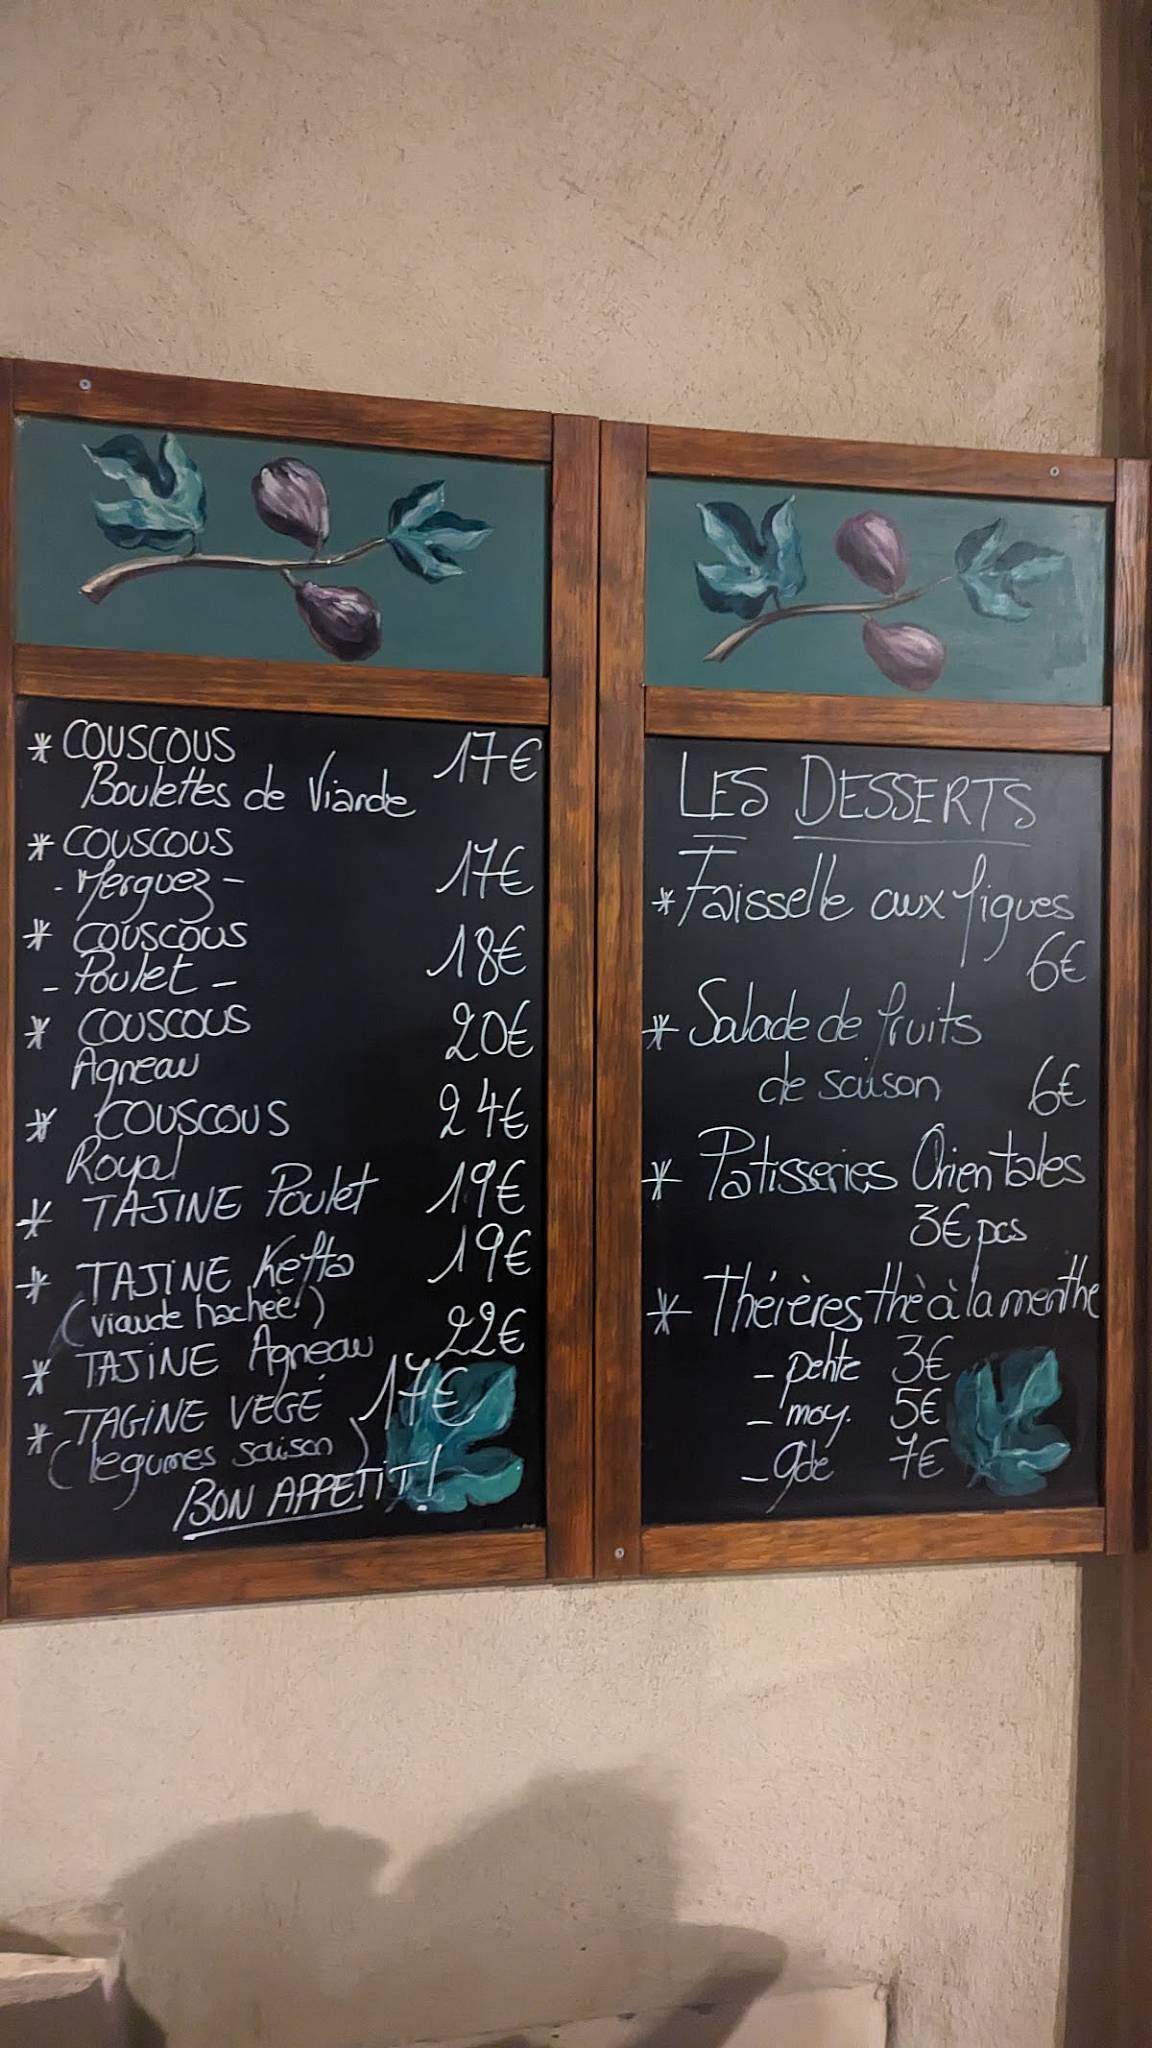 * COUSCOUS 17€
Boulettes de Viande
* COUSCOUS
- Merguez - 17€
* COUSCOUS 18€
- Poulet -
* COUSCOUS 20€
Agneau
* COUSCOUS 24€
Royal
* TAJINE Poulet 19€
* TAJINE Kefta 19€
(viande hachée)
* TAJINE Agneau 22€
* TAGINE VEGÉ 17€
(légumes saison)
BON APPETIT !
LES DESSERTS
* Faisselle aux figues
6€
* Salade de fruits
de saison 6€
* Patisseries Orientales
3€ pcs
* Théières thè à la menthe
- petite 3€
- moy. 5€
- gde 7€